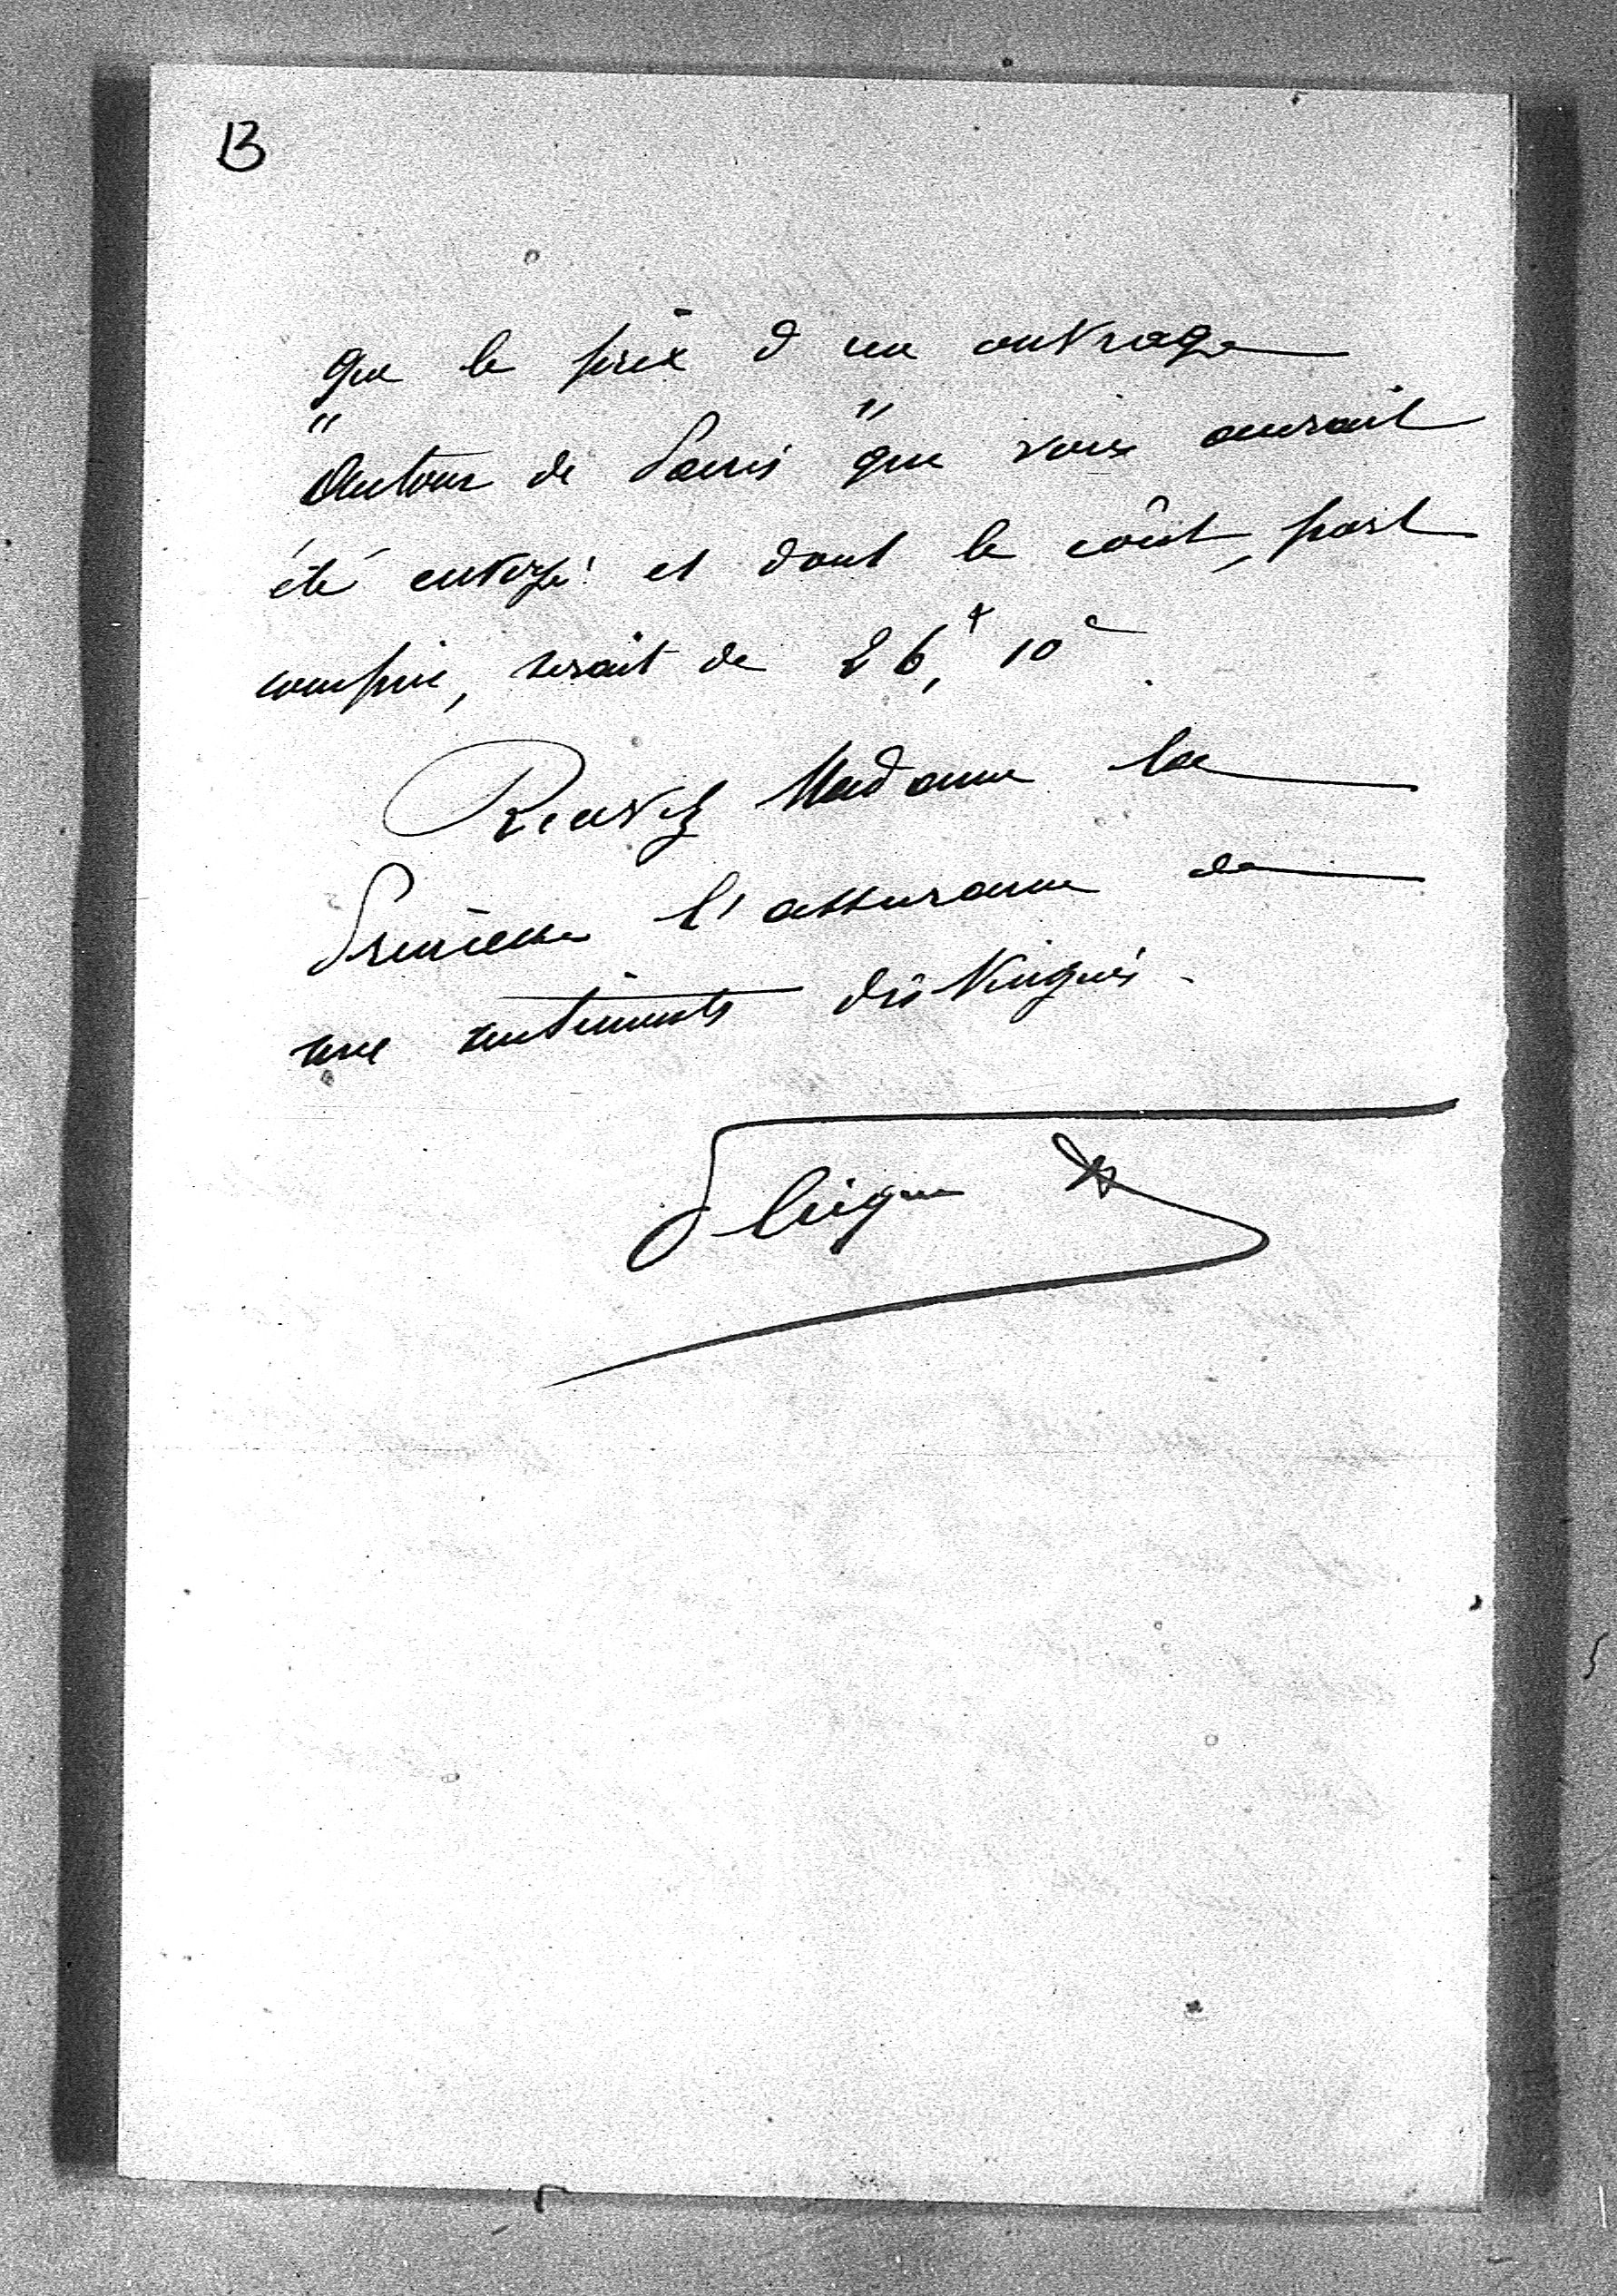 13
que le prix d'un ouvrage
"Autour de Paris" que vous aurait
été envoyé et dont le coût, port
compris, serait de 26,f 10c.
Recevez Madame la
Princesse l'assurance de
mes sentiments distingués.